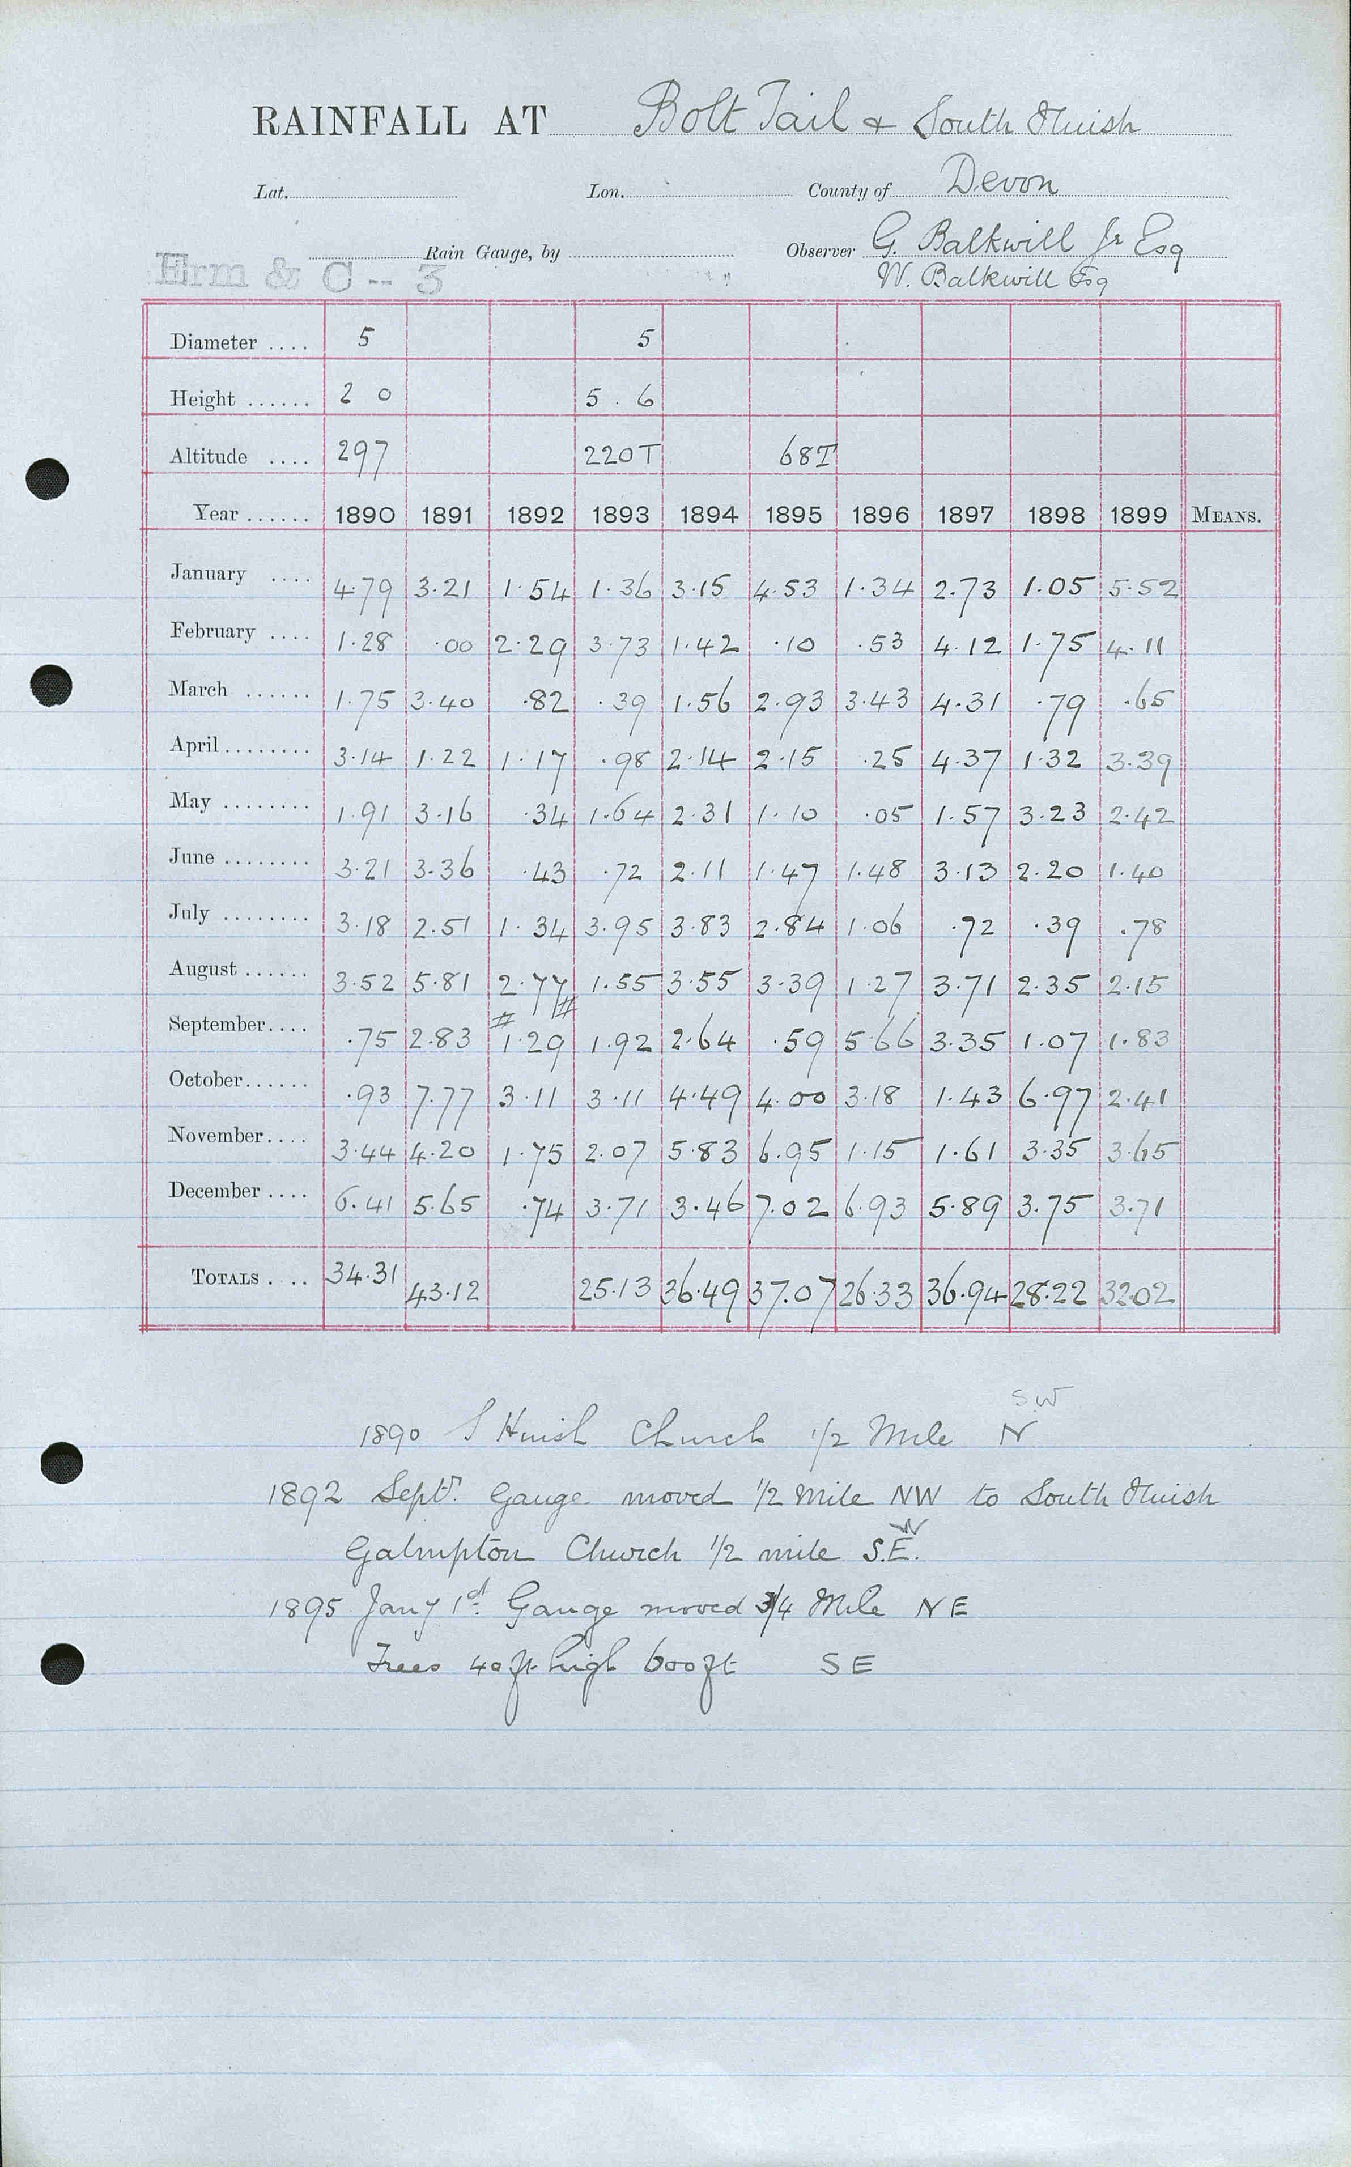 RAINFALL AT Bolt Tail & South Huish
Lat. Lon. County of Devon
Rain Gauge, by Observer G. Balkwill Jr Esq
Erm & C -- 3 W. Balkwill Esq
Diameter .... 5 5
Height ...... 2 0 5 . 6
Altitude .... 297 220T 68T
Year ...... 1890 1891 1892 1893 1894 1895 1896 1897 1898 1899 MEANS.
January .... 4.79 3.21 1.54 1.36 3.15 4.53 1.34 2.73 1.05 5.52
February .... 1.28 .00 2.29 3.73 1.42 .10 .53 4.12 1.75 4.11
March ...... 1.75 3.40 .82 .39 1.56 2.93 3.43 4.31 .79 .65
April ........ 3.14 1.22 1.17 .98 2.14 2.15 .25 4.37 1.32 3.39
May ........ 1.91 3.16 .34 1.64 2.31 1.10 .05 1.57 3.23 2.42
June ........ 3.21 3.36 .43 .72 2.11 1.47 1.48 3.13 2.20 1.40
July ........ 3.18 2.51 1.34 3.95 3.83 2.84 1.06 .72 .39 .78
August ...... 3.52 5.81 2.77 1.55 3.55 3.39 1.27 3.71 2.35 2.15
September .... .75 2.83 # 1.29 # 1.92 2.64 .59 5.66 3.35 1.07 1.83
October ...... .93 7.77 3.11 3.11 4.49 4.00 3.18 1.43 6.97 2.41
November .... 3.44 4.20 1.75 2.07 5.83 6.95 1.15 1.61 3.35 3.65
December .... 6.41 5.65 .74 3.71 3.46 7.02 6.93 5.89 3.75 3.71
TOTALS . .. 34.31 43.12 25.13 36.49 37.07 26.33 36.94 28.22 32.02
SW
1890 S Huish Church 1/2 Mile N
1892 Sept. Gauge moved 1/2 mile NW to South Huish
W
Galmpton Church 1/2 mile S.E.
1895 Jany 1st Gauge moved 3/4 Mile NE
Trees 40 ft high 600 ft SE